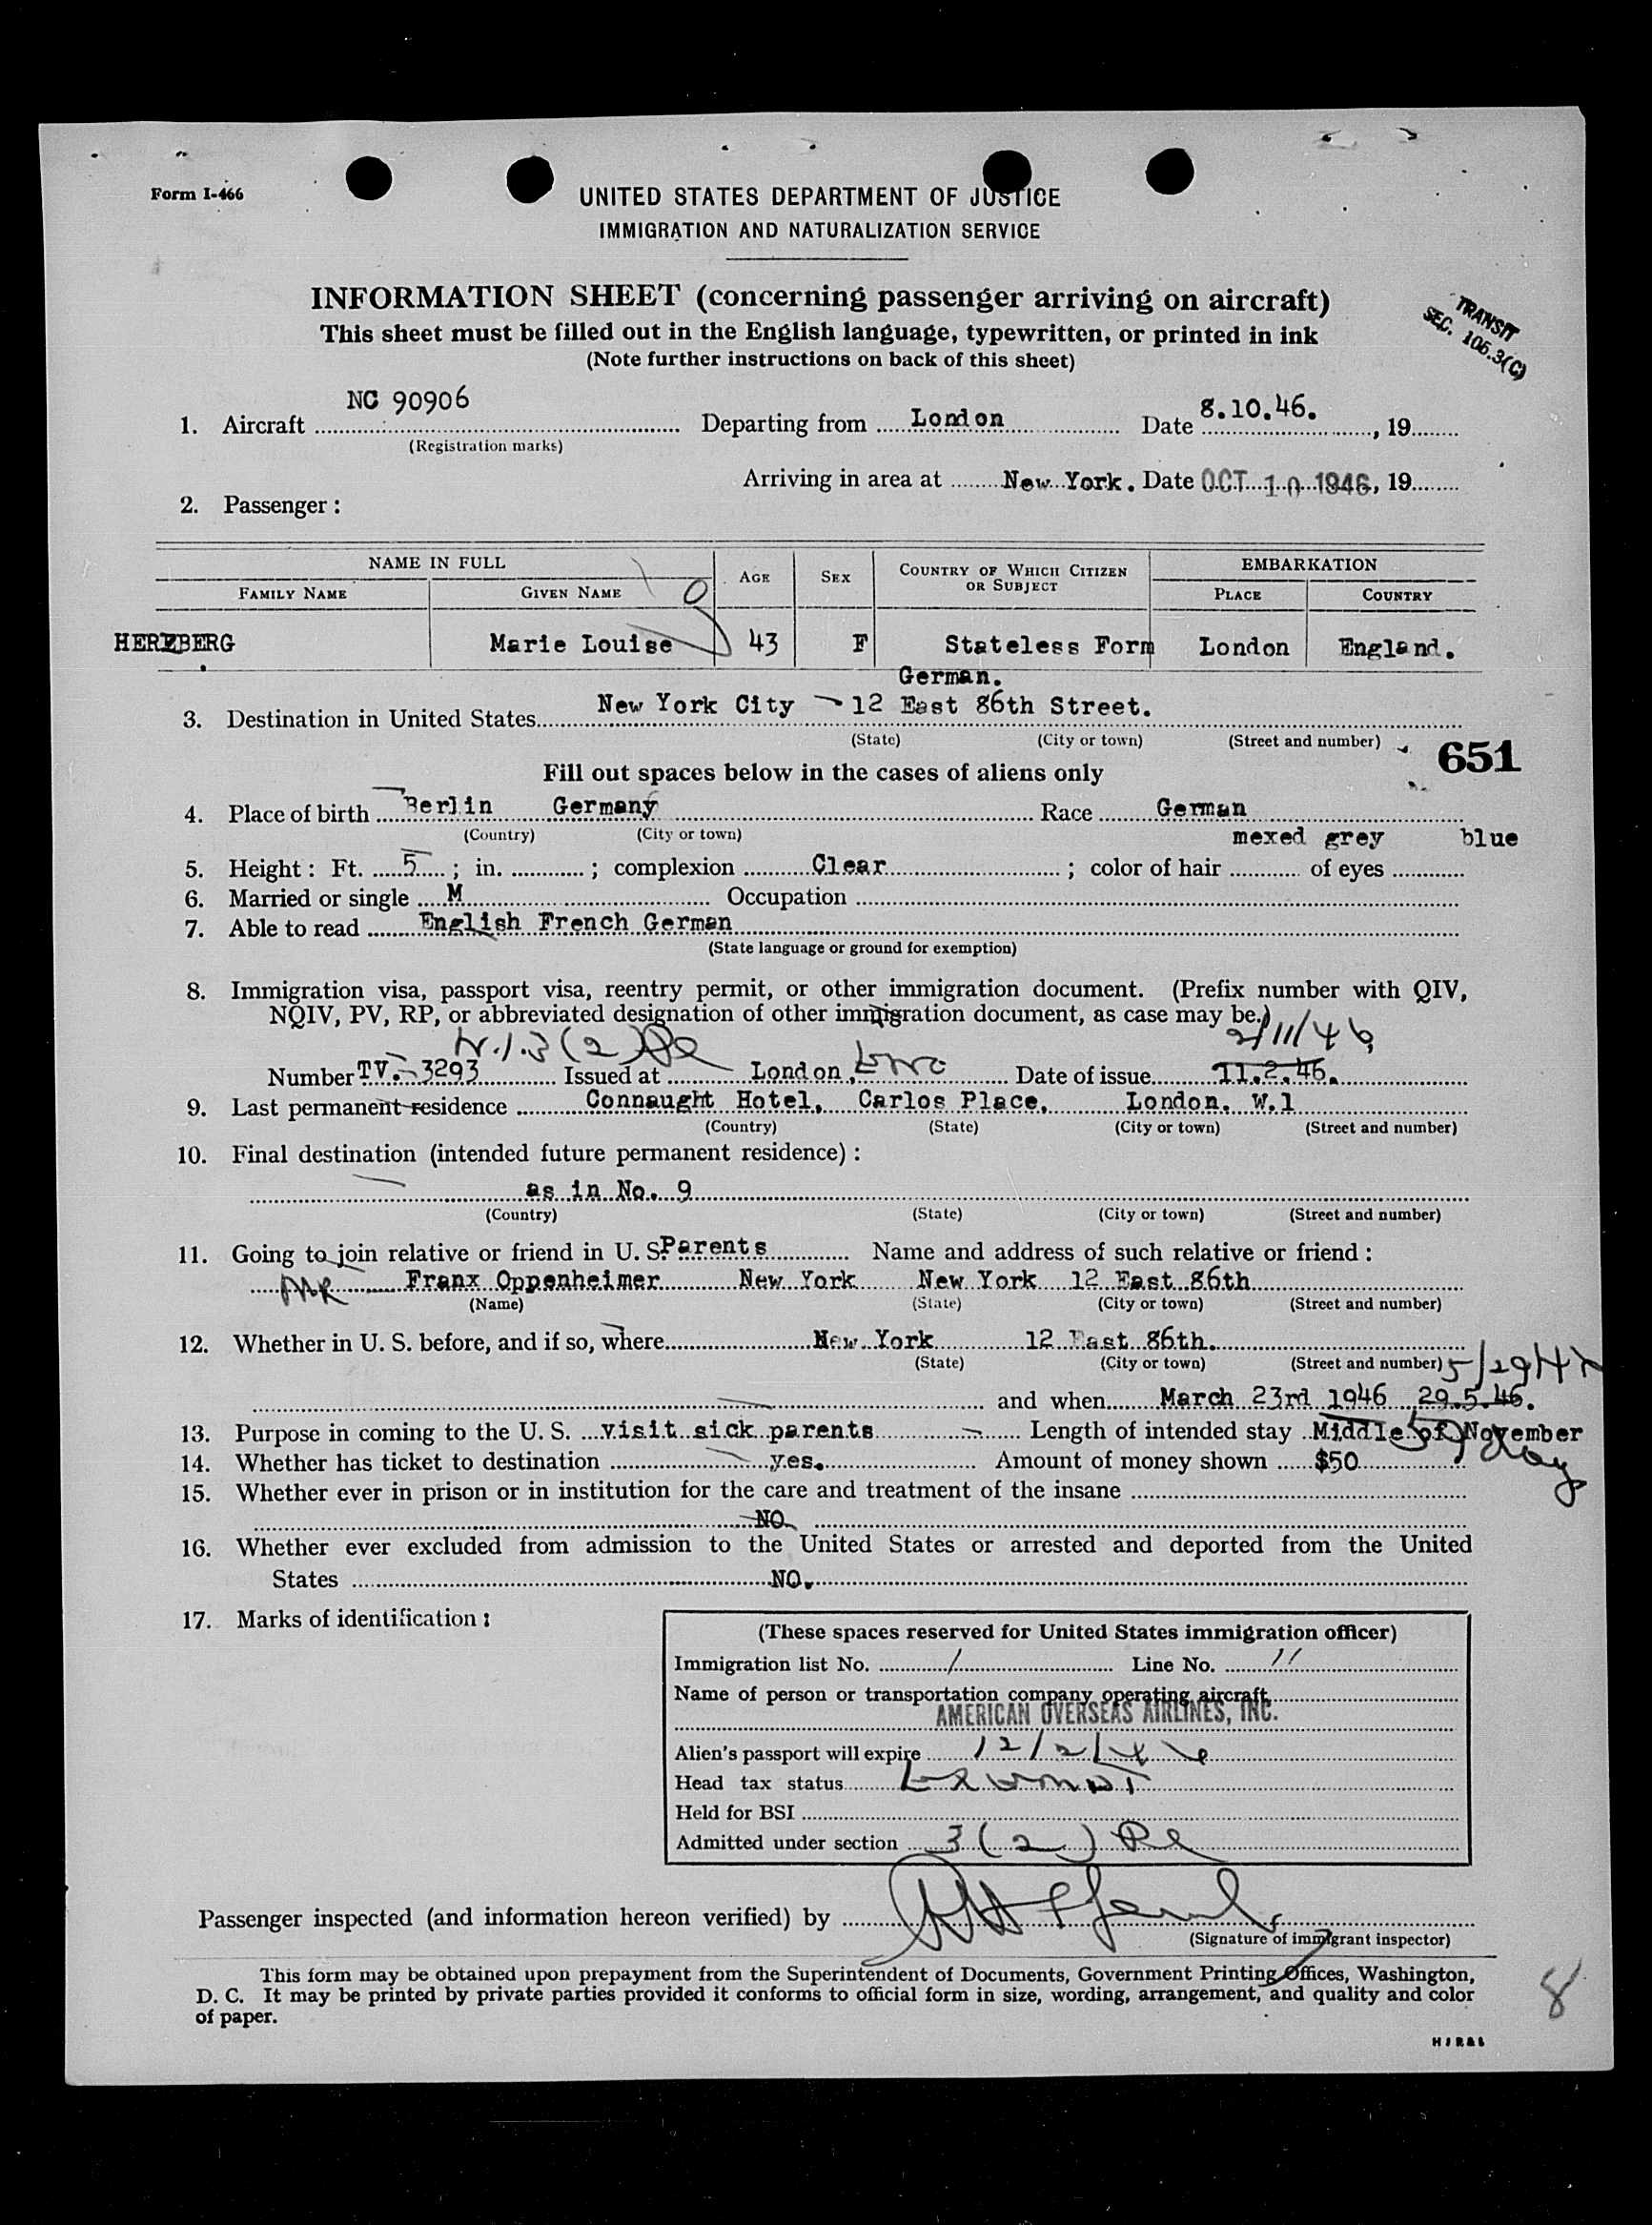 Form I-466
UNITED STATES DEPARTMENT OF JUSTICE
IMMIGRATION AND NATURALIZATION SERVICE
INFORMATION SHEET (concerning passenger arriving on aircraft)
This sheet must be filled out in the English language, typewritten, or printed in ink
(Note further instructions on back of this sheet)
TRANSIT
SEC. 106.3(C)
1. Aircraft NC 90906 Departing from London Date 8.10.46. , 19
(Registration marks)
Arriving in area at New York. Date OCT 10 1946, 19
2. Passenger :
NAME IN FULL AGE SEX COUNTRY OF WHICH CITIZEN OR SUBJECT EMBARKATION
FAMILY NAME GIVEN NAME PLACE COUNTRY
HERZBERG Marie Louise 43 F Stateless Form London England.
German.
3. Destination in United States New York City 12 East 86th Street.
(State) (City or town) (Street and number)
651
Fill out spaces below in the cases of aliens only
4. Place of birth Berlin Germany Race German
(Country) (City or town)
mexed grey blue
5. Height : Ft. 5 ; in. ; complexion Clear ; color of hair of eyes
6. Married or single M Occupation
7. Able to read English French German
(State language or ground for exemption)
8. Immigration visa, passport visa, reentry permit, or other immigration document. (Prefix number with QIV,
NQIV, PV, RP, or abbreviated designation of other immigration document, as case may be.)
3(2) 2/11/46
Number TV. 3293 Issued at London, Date of issue 11.2.46.
9. Last permanent residence Connaught Hotel, Carlos Place, London, W.1
(Country) (State) (City or town) (Street and number)
10. Final destination (intended future permanent residence) :
as in No. 9
(Country) (State) (City or town) (Street and number)
11. Going to join relative or friend in U. S. Parents Name and address of such relative or friend :
Franx Oppenheimer New York New York 12 East 86th
(Name) (State) (City or town) (Street and number)
12. Whether in U. S. before, and if so, where New York 12 East 86th.
(State) (City or town) (Street and number)
and when March 23rd 1946 29.5.46.
13. Purpose in coming to the U. S. visit sick parents Length of intended stay Middle of November
14. Whether has ticket to destination yes. Amount of money shown $50
15. Whether ever in prison or in institution for the care and treatment of the insane
NO
16. Whether ever excluded from admission to the United States or arrested and deported from the United
States NO.
17. Marks of identification :
(These spaces reserved for United States immigration officer)
Immigration list No. 1 Line No. 11
Name of person or transportation company operating aircraft
AMERICAN OVERSEAS AIRLINES, INC.
Alien's passport will expire 12/2/46
Head tax status Exempt
Held for BSI
Admitted under section 3(2)
Passenger inspected (and information hereon verified) by
(Signature of immigrant inspector)
This form may be obtained upon prepayment from the Superintendent of Documents, Government Printing Offices, Washington,
D. C. It may be printed by private parties provided it conforms to official form in size, wording, arrangement, and quality and color
of paper.
8